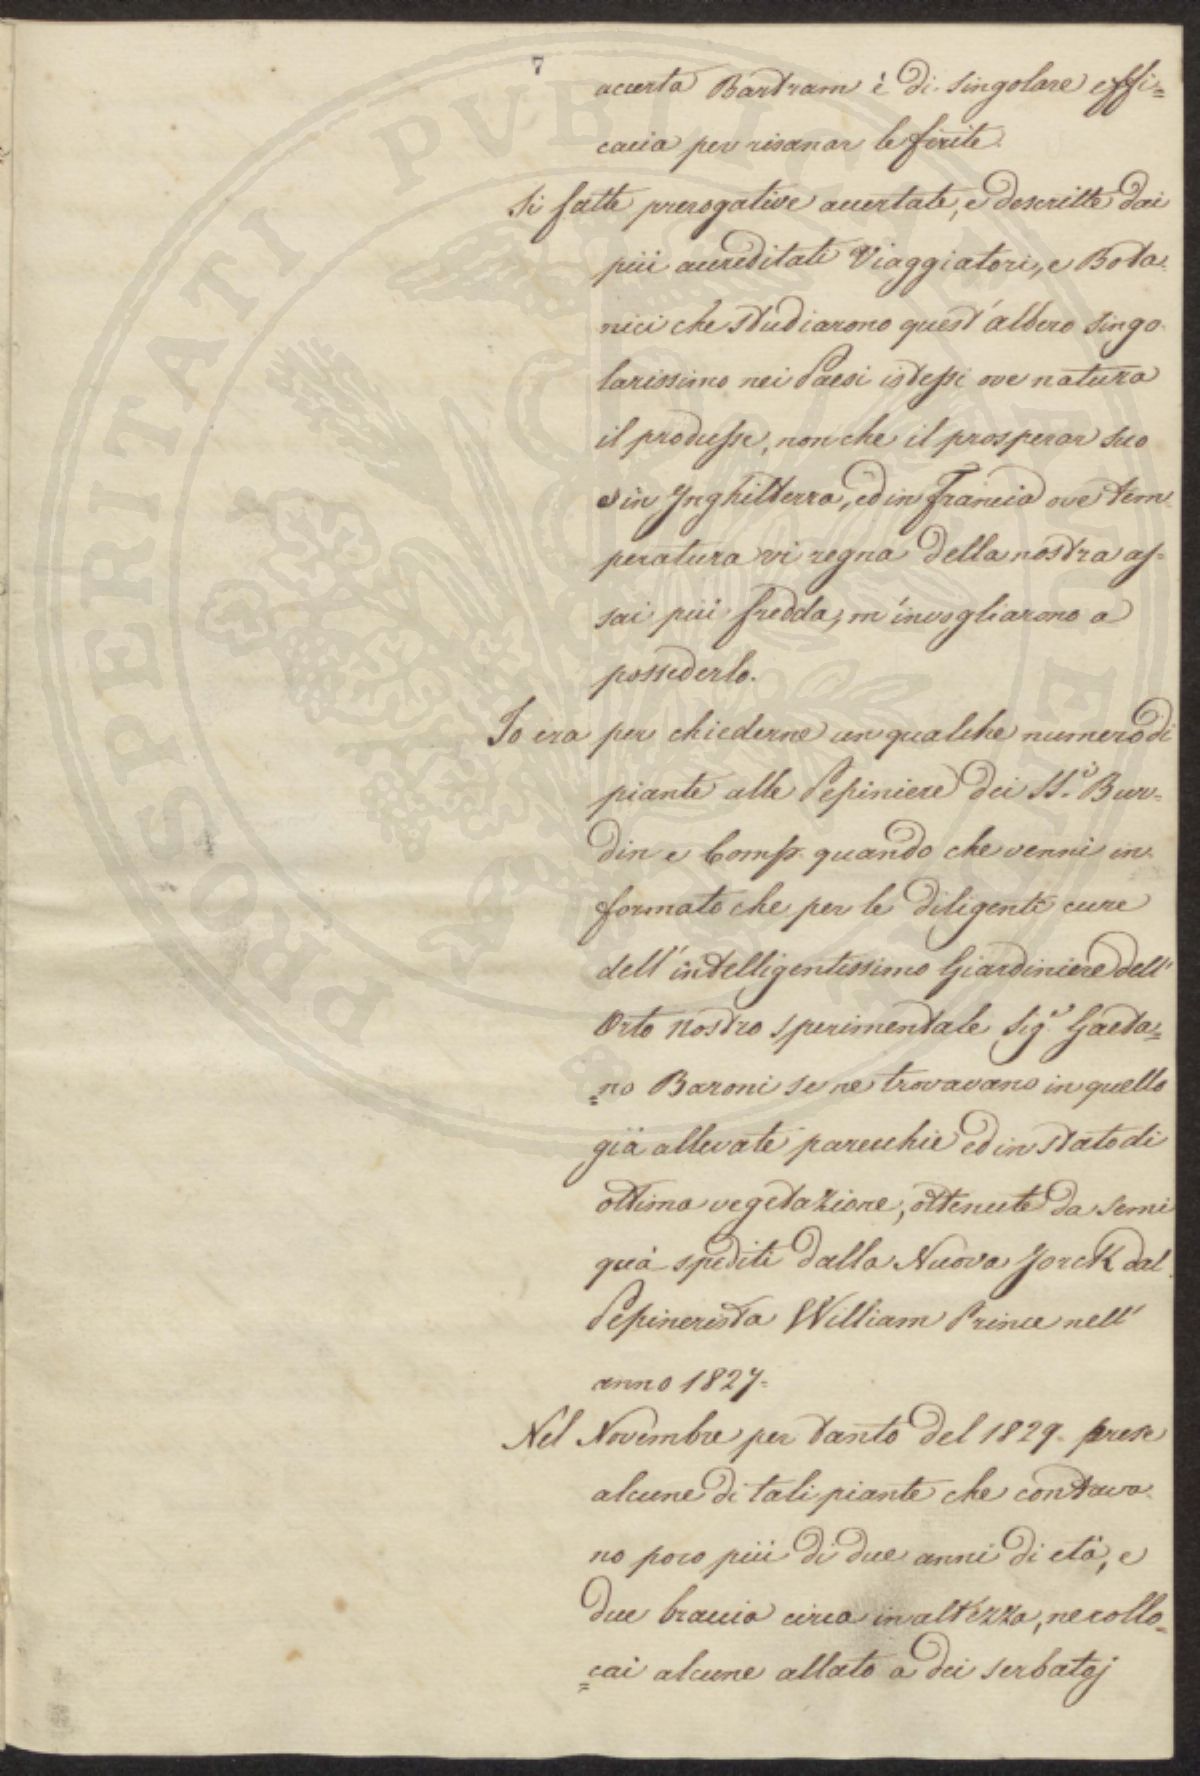 7
accerta Bartram è di singolare effi=
cacia per risanar le ferite.
Si fatte prerogative accertate, e descritte dai
più accreditati Viaggiatori, e Bota
nici che studiarono quest'albero singo
larissimo nei Paesi istessi ove natura
il produsse, non che il prosperar suo
in Inghilterra, ed in Francia ove tem
peratura vi regna della nostra as-
sai più fredda, m'invogliarono a
possederlo.
Io era per chiederne un qualche numero di
piante alle Pepiniere dei SS.i Bur=
din e Comp. quando che venni in
formato che per le diligenti cure
dell'intelligentissimo Giardiniere dell'
Orto nostro sperimentale Sig.r Gaeta=
=no Baroni se ne trovavano in quello
già allevate parecchie ed in stato di
ottima vegetazione, ottenute da semi
quà spediti dalla Nuova Jorck dal
Pepinerista William Prince nell'
anno 1827.
Nel Novembre per tanto del 1829. prese
alcune di tali piante che contava
no poco più di due anni di età, e
due braccia circa in altezza, ne collo=
=cai alcune allato a dei serbatoj
PROSPERITATI PUBLICAE AUGENDAE